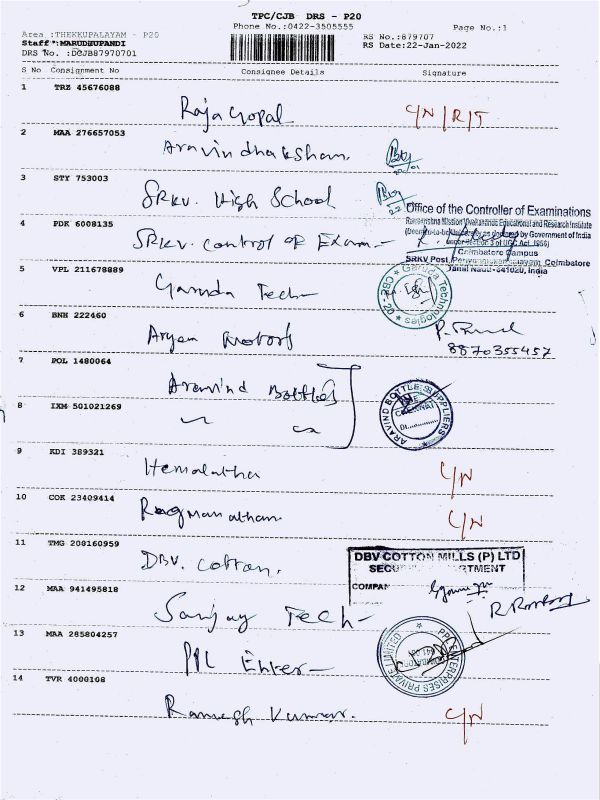 TPC/CJB DRS - P20
Phone No.:0422-3505555
Page No.:1
Area :THEKKUPALAYAM - P20
RS No.:879707
Staff :MARUDHUPANDI
RS Date:22-Jan-2022
DRS No. :DCJB87970701
S No Consignment No Consignee Details Signature
1 TRZ 45676088
Rajagopal C/N/R/T
2 MAA 276657053
Aravindhaksham
3 STY 753003
SRKV. High School
Office of the Controller of Examinations
Ramakrishna Mission Vivekananda Educational and Research Institute
(Deemed-to-be-University as declared by Government of India
under section 3 of UGC Act, 1956)
Coimbatore Campus
SRKV Post, Coimbatore
Tamil Nadu - 641020, India
4 PDK 6008135
SRKV. Control of Exam
5 VPL 211678889
Garuda Tech
Garuda Technologies
CBE-20
6 BNH 222460
Aryan Motors
8870355457
7 POL 1480064
Aravind Bottles
ARAVIND BOTTLE SUPPLIERS
8 IXM 501021269
9 KDI 389321
Hemalatha C/N
10 COK 23409414
C/N
11 TMG 200160959
DBV. Cotton.
DBV COTTON MILLS (P) LTD
12 MAA 941495818
Sanjay Tech
13 MAA 285804257
PPL Enter
PPL ENTERPRISES PRIVATE LIMITED
14 TVR 4000108
Ramesh Kumar. C/N